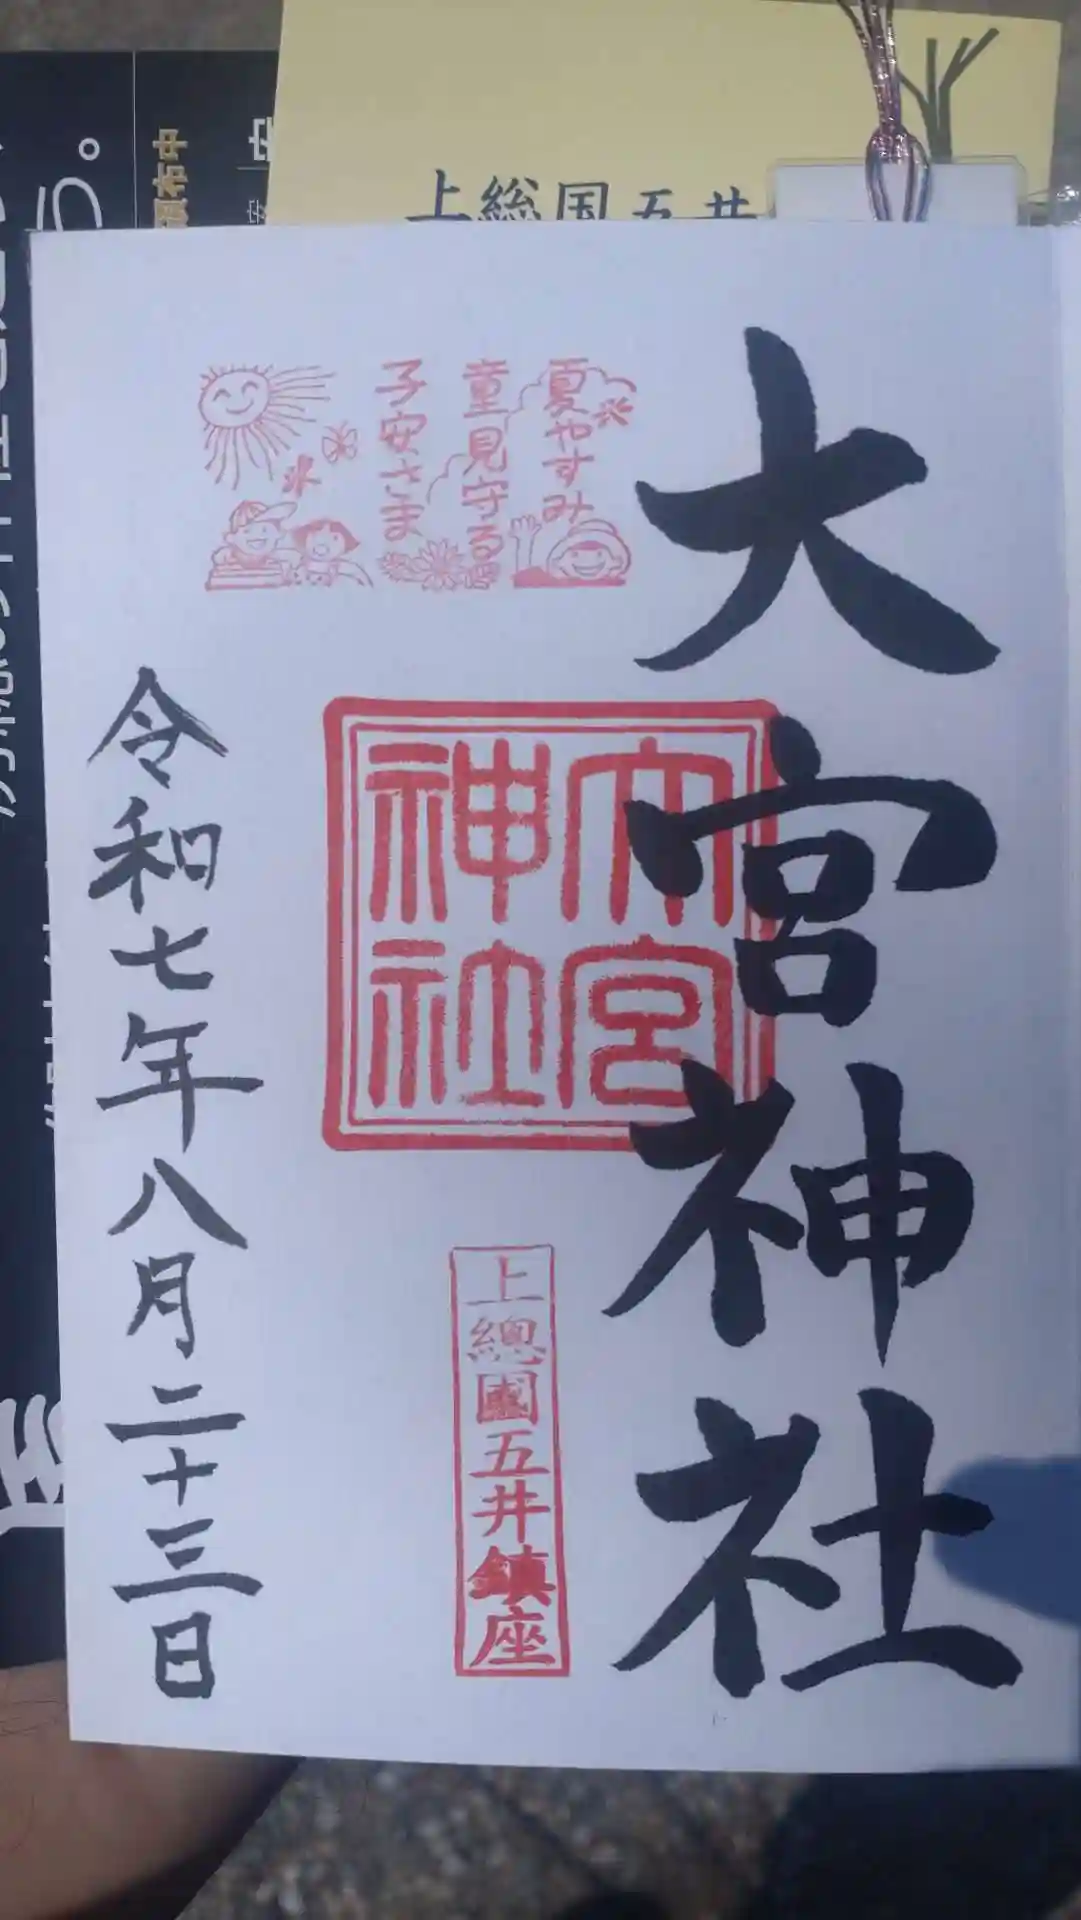 上総国五井
大宮神社
夏やすみ
童見守る
子安さま
大宮
神社
上總國五井鎮座
令和七年八月二十三日